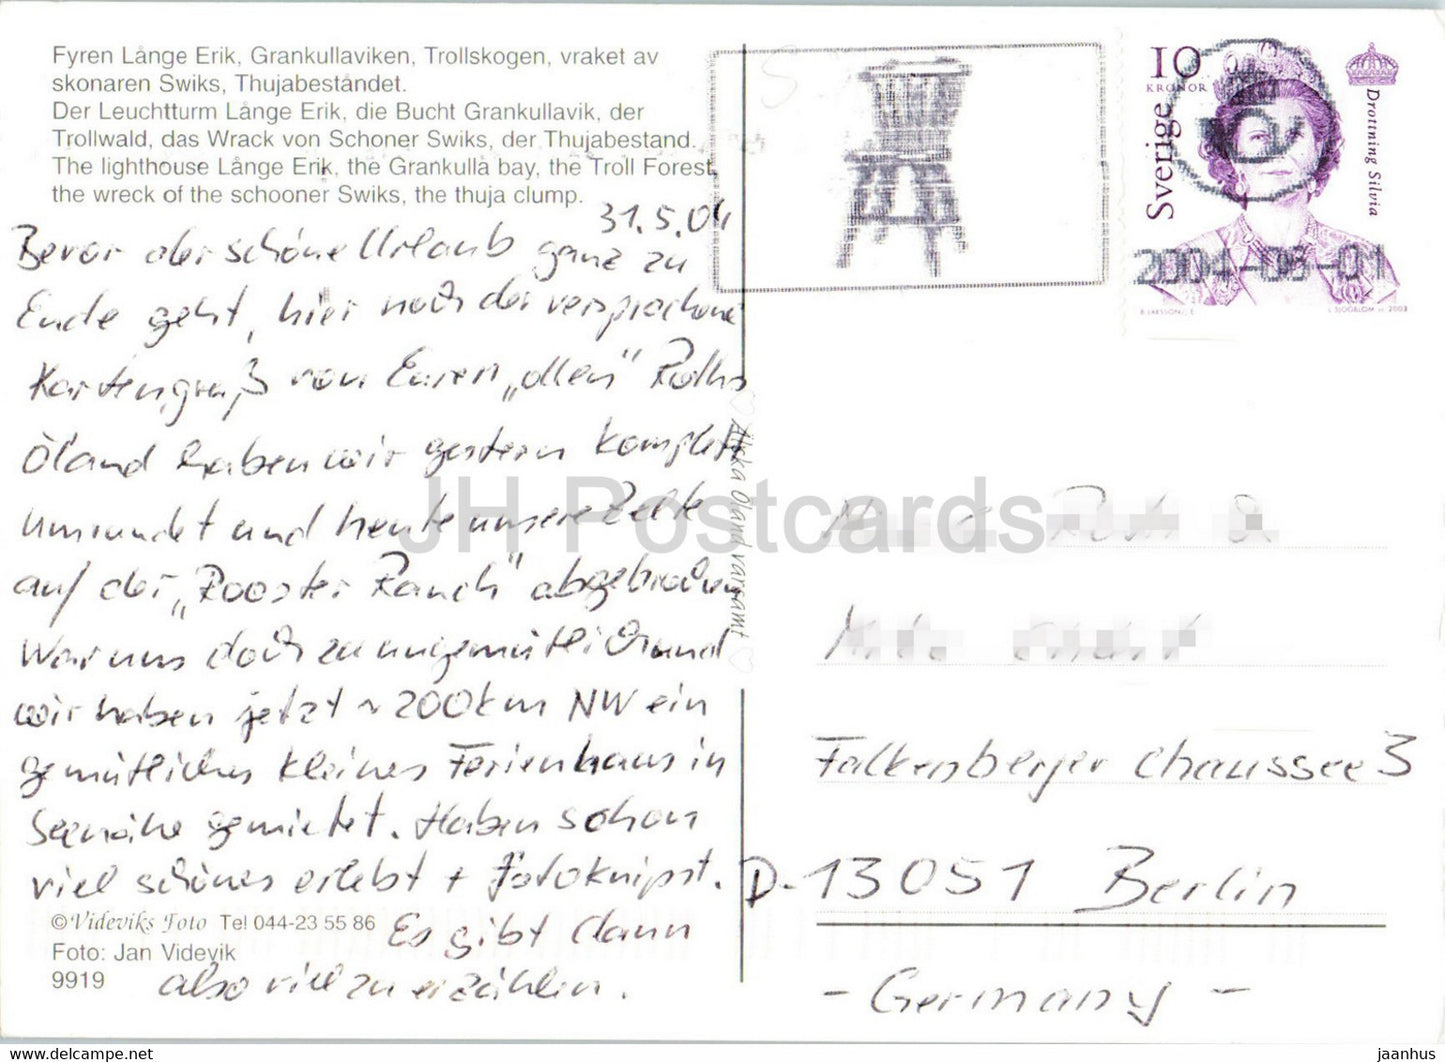 Fyren Långe Erik, Grankullaviken, Trollskogen, vraket av
skonaren Swiks, Thujabeståndet.
Der Leuchtturm Långe Erik, die Bucht Grankullavik, der
Trollwald, das Wrack von Schoner Swiks, der Thujabestand.
The lighthouse Långe Erik, the Grankulla bay, the Troll Forest,
the wreck of the schooner Swiks, the thuja clump.
31.5.04
Bevor der schöne Urlaub ganz zu
Ende geht, hier noch der versprochene
Kartengruß von Euren „ollen“ Roths
Öland haben wir gestern komplett
umrundet und heute unsere Zelte
auf der „Rooster Ranch“ abgebrochen
War uns doch zu ungemütlich und
wir haben jetzt ~ 200 km NW ein
gemütliches kleines Ferienhaus in
Seenähe gemietet. Haben schon
viel schönes erlebt + fotoknipst.
Es gibt dann
also viel zu erzählen.
© Videviks Foto Tel 044-23 55 86
Foto: Jan Videvik
9919
♡ Älska Öland varsamt ♡
10
KRONOR
Sverige
Drottning Silvia
2004-06-01
Falkenberger Chaussee 3
D-13051 Berlin
- Germany -
JH Postcards
jaanhus.com